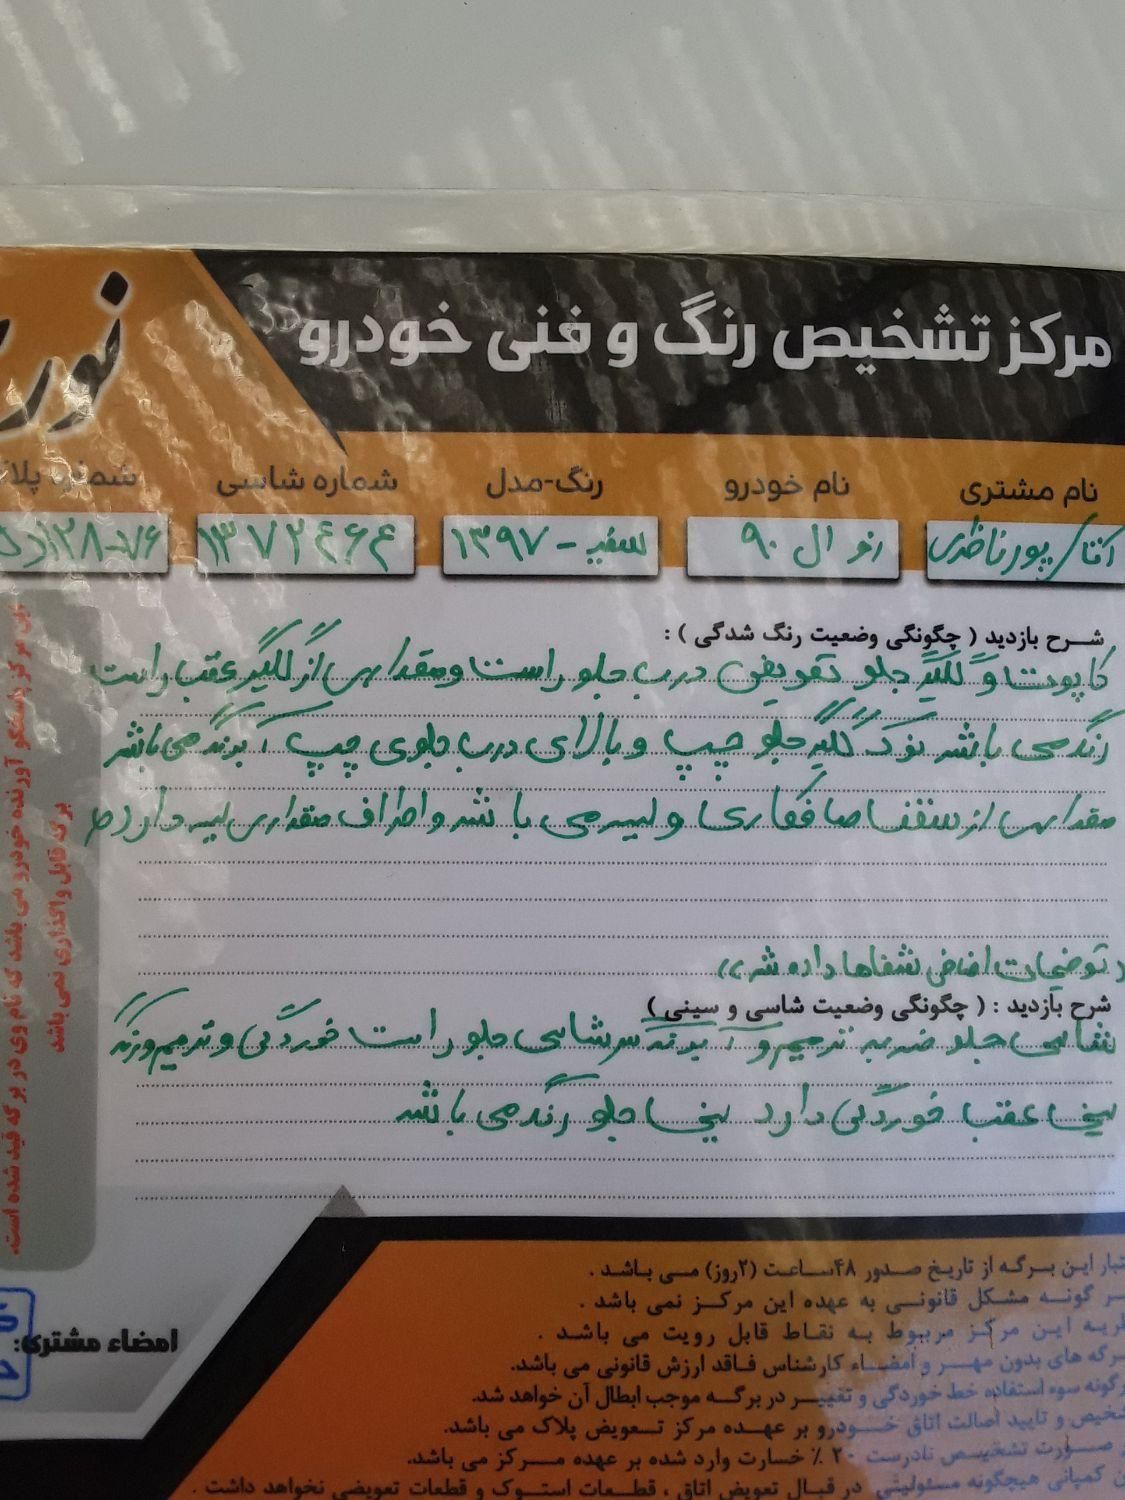 مرکز تشخیص رنگ و فنی خودرو
نام مشتری
نام خودرو
رنگ-مدل
شماره شاسی
شماره پلا
آقای پورناظری
رنو ال ۹۰
سفید - ۱۳۹۷
شرح بازدید ( چگونگی وضعیت رنگ شدگی ) :
کاپوت و گلگیر جلو تعویض درب جلو راست و مقداری از گلگیر عقب راست
رنگ می باشد نوک گلگیر جلو چپ و بالای درب جلوی چپ آبرنگ می باشد
مقداری از سقف صافکاری و لیسه می باشد و اطراف مقداری لیسه دارد
توضیحات اضافی شفاها داده شد
شرح بازدید : ( چگونگی وضعیت شاسی و سینی )
شاسی جلو ضربه ترمیم و آبرنگ سرشاسی جلو راست خوردگی و ترمیم و رنگ
سینی عقب خوردگی دارد سینی جلو رنگ می باشد
این مرکز پاسخگو آورنده خودرو می باشد که نام وی در برگه قید شده است.
برگه قابل واگذاری نمی باشد
امضاء مشتری:
تبار این برگه از تاریخ صدور ۴۸ساعت (۲روز) می باشد .
ر گونه مشکل قانونی به عهده این مرکز نمی باشد .
ظریه این مرکز مربوط به نقاط قابل رویت می باشد .
رگه های بدون مهر و امضاء کارشناس فاقد ارزش قانونی می باشد.
رگونه سوء استفاده خط خوردگی و تغییر در برگه موجب ابطال آن خواهد شد.
شخیص و تایید اصالت اتاق خودرو بر عهده مرکز تعویض پلاک می باشد.
ر صورت تشخیص نادرست ۲۰ ٪ خسارت وارد شده بر عهده مرکز می باشد.
ن کمپانی هیچگونه مسئولیتی در قبال تعویض اتاق ، قطعات استوک و قطعات تعویضی نخواهد داشت .